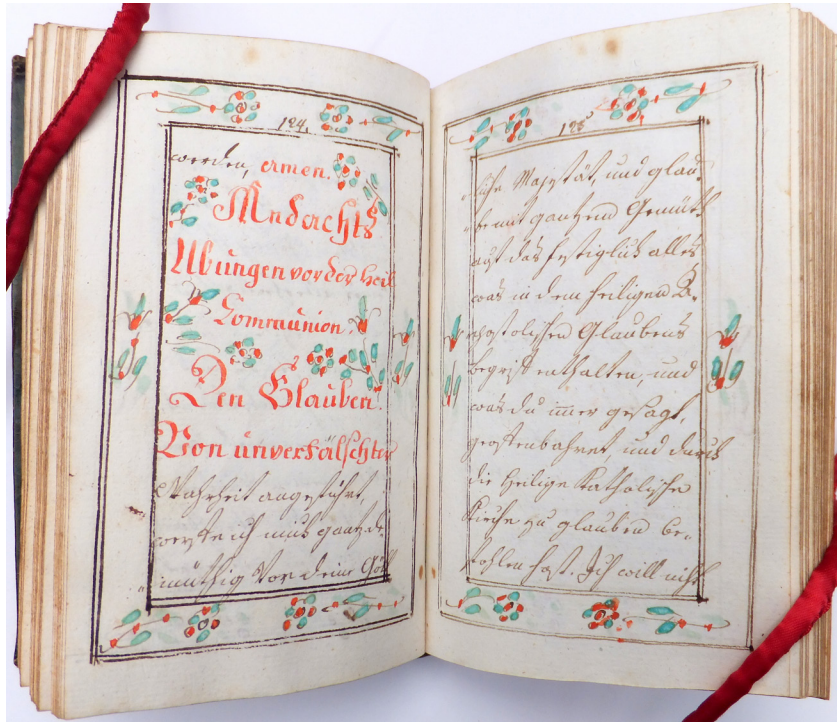 124.
werden, amen.
Andachts
Ubungen vor der Heil
Communion.
Den Glauben.
Von unverfälschter
Wahrheit angeführt,
werfe ich mich gantz de-
müthig Vor deine Gött
125
liche Majestät, und glau-
be mit gantzem Gemüth
auf das festiglich alles
was in dem heiligen A-
postolischen Glaubens
begrif enthalten, und
was du immer gesagt,
geoffenbahret, und durch
die heilige Katholische
Kirche zu glauben be-
fohlen hast. Ich will nicht